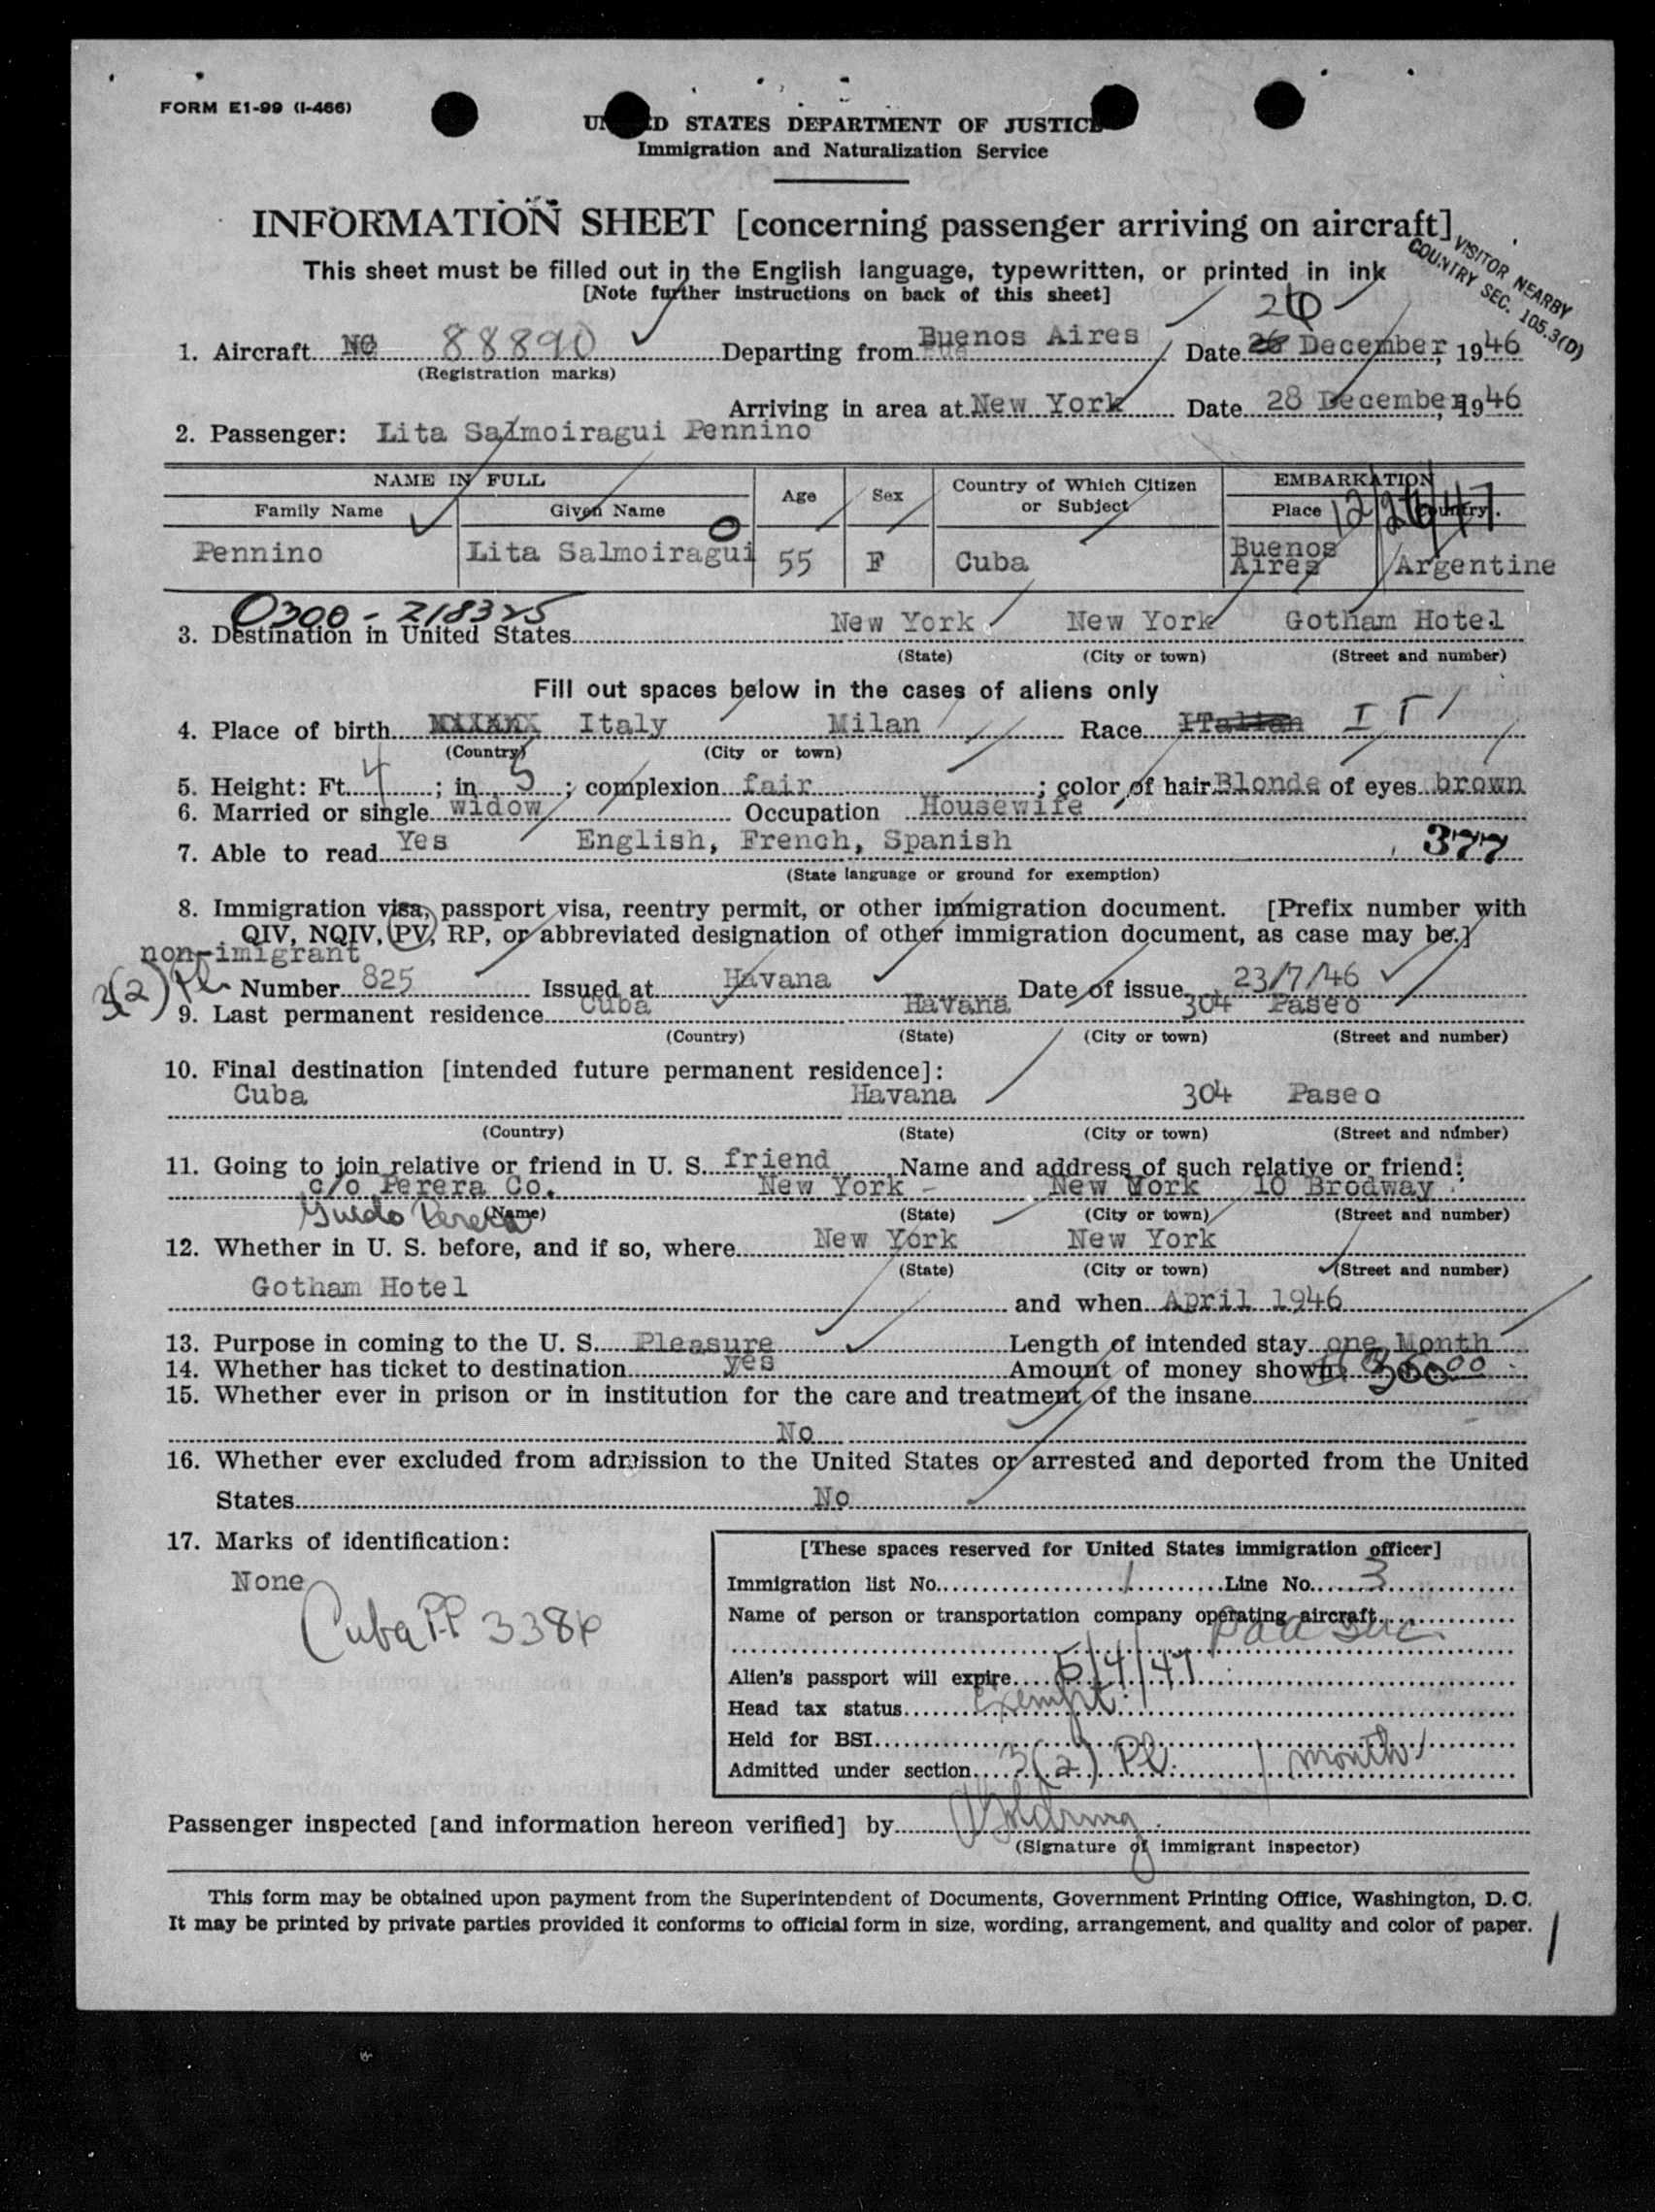 FORM E1-99 (I-466)
UNITED STATES DEPARTMENT OF JUSTICE
Immigration and Naturalization Service
INFORMATION SHEET [concerning passenger arriving on aircraft]
VISITOR NEARBY
COUNTRY SEC. 105.3(D)
This sheet must be filled out in the English language, typewritten, or printed in ink
[Note further instructions on back of this sheet]
26
1. Aircraft NC 88890 Departing from Buenos Aires Date 26 December, 1946
(Registration marks)
Arriving in area at New York Date 28 December, 1946
2. Passenger: Lita Salmoiragui Pennino
NAME IN FULL Age Sex Country of Which Citizen or Subject EMBARKATION
Family Name Given Name Place Country
Pennino Lita Salmoiragui 55 F Cuba Buenos Aires Argentine
0300 - 218325
3. Destination in United States New York New York Gotham Hotel
(State) (City or town) (Street and number)
Fill out spaces below in the cases of aliens only
4. Place of birth Italy Milan Race Italian IT
(Country) (City or town)
5. Height: Ft. 4; in. 5; complexion fair; color of hair Blonde of eyes brown
6. Married or single widow Occupation Housewife
7. Able to read Yes English, French, Spanish 377
(State language or ground for exemption)
8. Immigration visa, passport visa, reentry permit, or other immigration document. [Prefix number with
QIV, NQIV, PV, RP, or abbreviated designation of other immigration document, as case may be.]
non-imigrant
3(2) Pl Number 825 Issued at Havana Date of issue 23/7/46
9. Last permanent residence Cuba Havana 304 Paseo
(Country) (State) (City or town) (Street and number)
10. Final destination [intended future permanent residence]:
Cuba Havana 304 Paseo
(Country) (State) (City or town) (Street and number)
11. Going to join relative or friend in U. S. friend Name and address of such relative or friend:
c/o Perera Co. New York - New York 10 Brodway
Guido Perera (Name) (State) (City or town) (Street and number)
12. Whether in U. S. before, and if so, where New York New York
(State) (City or town) (Street and number)
Gotham Hotel and when April 1946
13. Purpose in coming to the U. S. Pleasure Length of intended stay one Month
14. Whether has ticket to destination yes Amount of money shown
15. Whether ever in prison or in institution for the care and treatment of the insane
No
16. Whether ever excluded from admission to the United States or arrested and deported from the United
States No
17. Marks of identification:
None
Cuba PP 3386
[These spaces reserved for United States immigration officer]
Immigration list No. 1 Line No. 3
Name of person or transportation company operating aircraft
Paa Inc
Alien's passport will expire 5/4/47
Head tax status Exempt
Held for BSI
Admitted under section 3(2) Pl. 1 month
Passenger inspected [and information hereon verified] by
(Signature of immigrant inspector)
This form may be obtained upon payment from the Superintendent of Documents, Government Printing Office, Washington, D. C.
It may be printed by private parties provided it conforms to official form in size, wording, arrangement, and quality and color of paper.